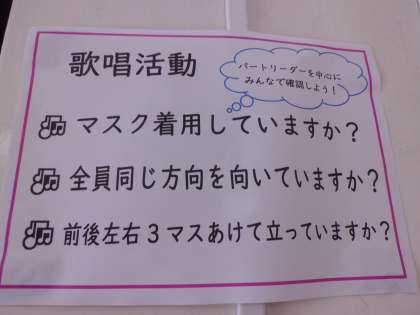 歌唱活動
パートリーダーを中心に
みんなで確認しよう！
マスク着用していますか？
全員同じ方向を向いていますか？
前後左右３マスあけて立っていますか？